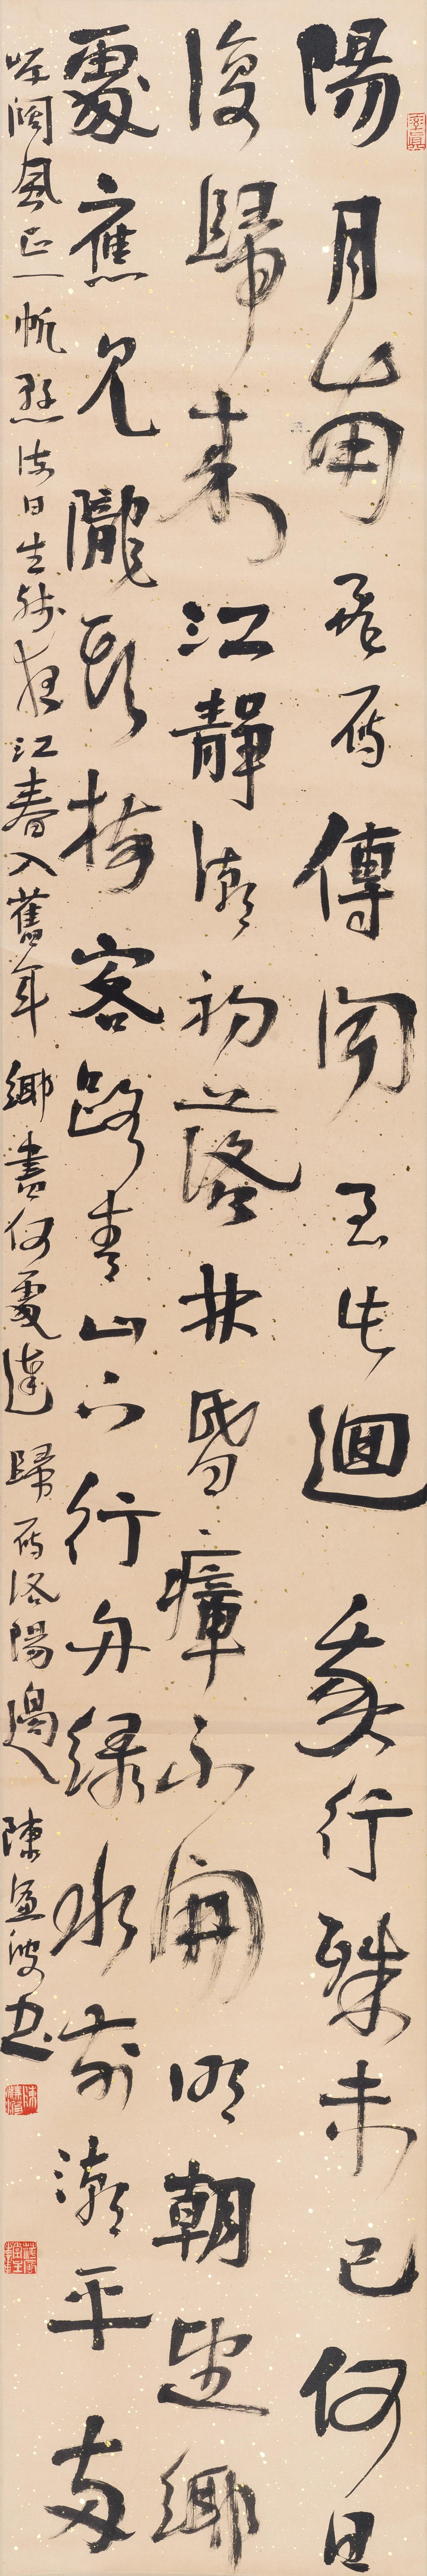 陽月南飛雁傳聞至此迴我行殊未已何日
復歸来江靜潮初落林昏瘴不開明朝望鄉
處應見隴頭梅客路青山下行舟綠水前潮平兩
岸闊風正一帆懸海日生殘夜江春入舊年鄉書何處達歸雁洛陽邊陳書